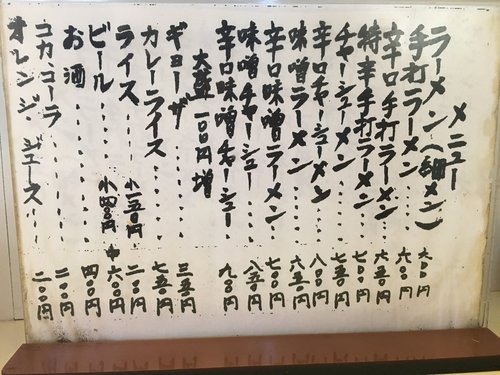 メニュー
ラーメン(細メン) 六〇〇円
手打ラーメン・・・・ 六〇〇円
辛口手打ラーメン・・ 六五〇円
特辛手打ラーメン・・ 七〇〇円
チャーシューメン・・・ 七五〇円
辛口チャーシューメン 八〇〇円
味噌ラーメン・・・・ 六五〇円
辛口味噌ラーメン 七〇〇円
味噌チャーシュー・・・ 八五〇円
辛口味噌チャーシュー・・ 九〇〇円
大盛一〇〇円増
ギョーザ・・・・・・ 三五〇円
カレーライス・・・・ 七五〇円
ライス・・・・小一五〇円 二〇〇円
ビール・・・・小四〇〇円 中六〇〇円
お酒・・・・・・・ 四〇〇円
コカ、コーラ・・・・・ 二〇〇円
オレンジジュース・・・ 二〇〇円